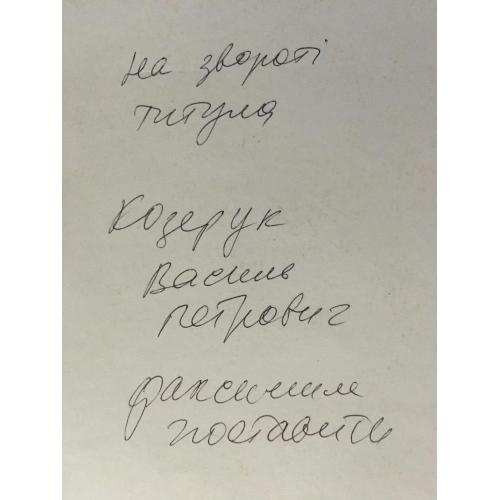 на звороті
титула
Козерук
Василь
Петрович
факсиміле
поставити